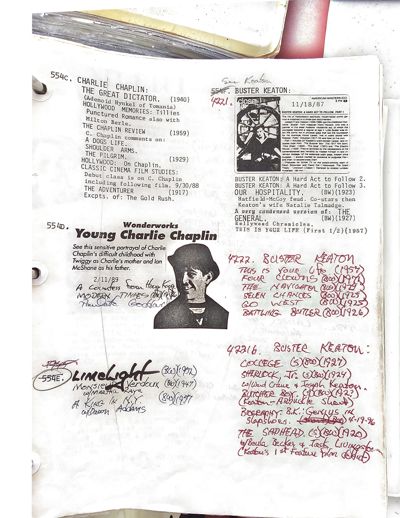 554C. CHARLIE CHAPLIN:
THE GREAT DICTATOR. (1940)
(Adenoid Hynkel of Tomania)
HOLLYWOOD MEMORIES: Tillies
Punctured Romance also with
Milton Berle.
THE CHAPLIN REVIEW (1959)
C. Chaplin comments on:
A DOGS LIFE.
SHOULDER ARMS.
THE PILGRIM.
HOLLYWOOD: On Chaplin. (1929)
CLASSIC CINEMA FILM STUDIES:
Debut class is on C. Chaplin
including following film. 9/30/88
THE ADVENTURER (1917)
Excpts. of: The Gold Rush.
554D.
Wonderworks
Young Charlie Chaplin
See this sensitive portrayal of Charlie
Chaplin's difficult childhood with
Twiggy as Charlie's mother and Ian
McShane as his father.
2/11/89
A Countess from Hong Kong
MODERN TIMES
Paulette Goddard
554E.
LIMELIGHT (BW)(1952)
Monsieur Verdoux (BW)(1947)
w/Martha Raye
A KING IN N.Y. (BW)(1957)
w/Dawn Addams
See Keaton
554F. BUSTER KEATON:
4221.
11/18/87
BUSTER KEATON: A HARD ACT TO FOLLOW, PART 1
BUSTER KEATON: A Hard Act to Follow 2.
BUSTER KEATON: A Hard Act to Follow 3.
OUR HOSPITALITY. (BW)(1923)
Hatfield-McCoy feud. Co-stars then
Keaton's wife Natalie Talmadge.
A very condensed version of: THE
GENERAL. (BW)(1927)
Hollywood Chronicles.
THIS IS YOUR LIFE (First 1/2)(1957)
4222. BUSTER KEATON
THIS IS YOUR LIFE (1957)
FOUR CLOWNS (BW)(1970)
THE NAVIGATOR (BW)(1924)
SEVEN CHANCES (BW)(1925)
GO WEST (BW)(1925)
BATTLING BUTLER (BW)(1926)
4222b. BUSTER KEATON:
COLLEGE (S)(BW)(1927)
SHERLOCK, JR. (S)(BW)(1924)
w/Ward Crane & Joseph Keaton.
BUTCHER BOY (S)(BW)(1917)
(Keaton-Arbuckle Short)
BIOGRAPHY: B.K.: Genius in
Slapshoes. 4-19-96
THE SAPHEAD (S)(BW)(1920)
w/Beula Becker & Jack Livingston
(Keaton's 1st Feature Film)